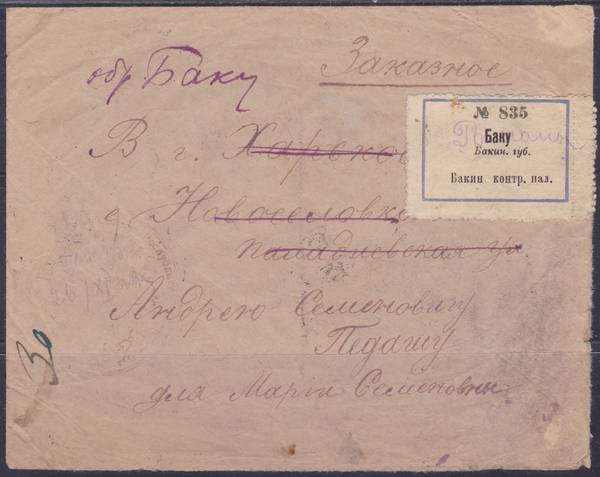 обр Баку
Заказное
№ 835
Баку
Бакин. губ.
Бакин контр. пал.
В г. Харько
д Новоселовка
Палладиевская ул.
30
Андрею Семеновичу
Педашу
для Маріи Семеновны